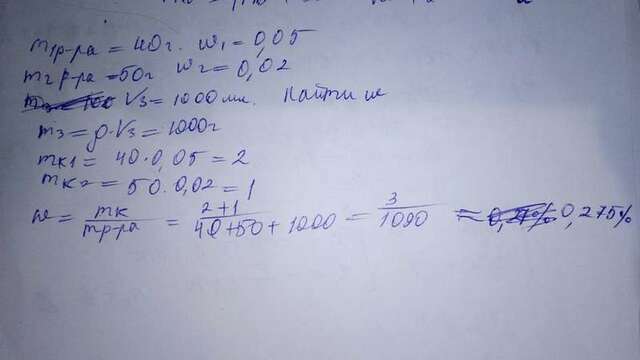 m1р-ра = 40г. w1 = 0,05
m2 р-ра = 50г w2 = 0,02
V3 = 1000 мл. Найти w
m3 = ρ·V3 = 1000г
mк1 = 40·0,05 = 2
mк2 = 50·0,02 = 1
w = mк/mр-ра = 2+1/40+50+1000 = 3/1090 = 0,275%